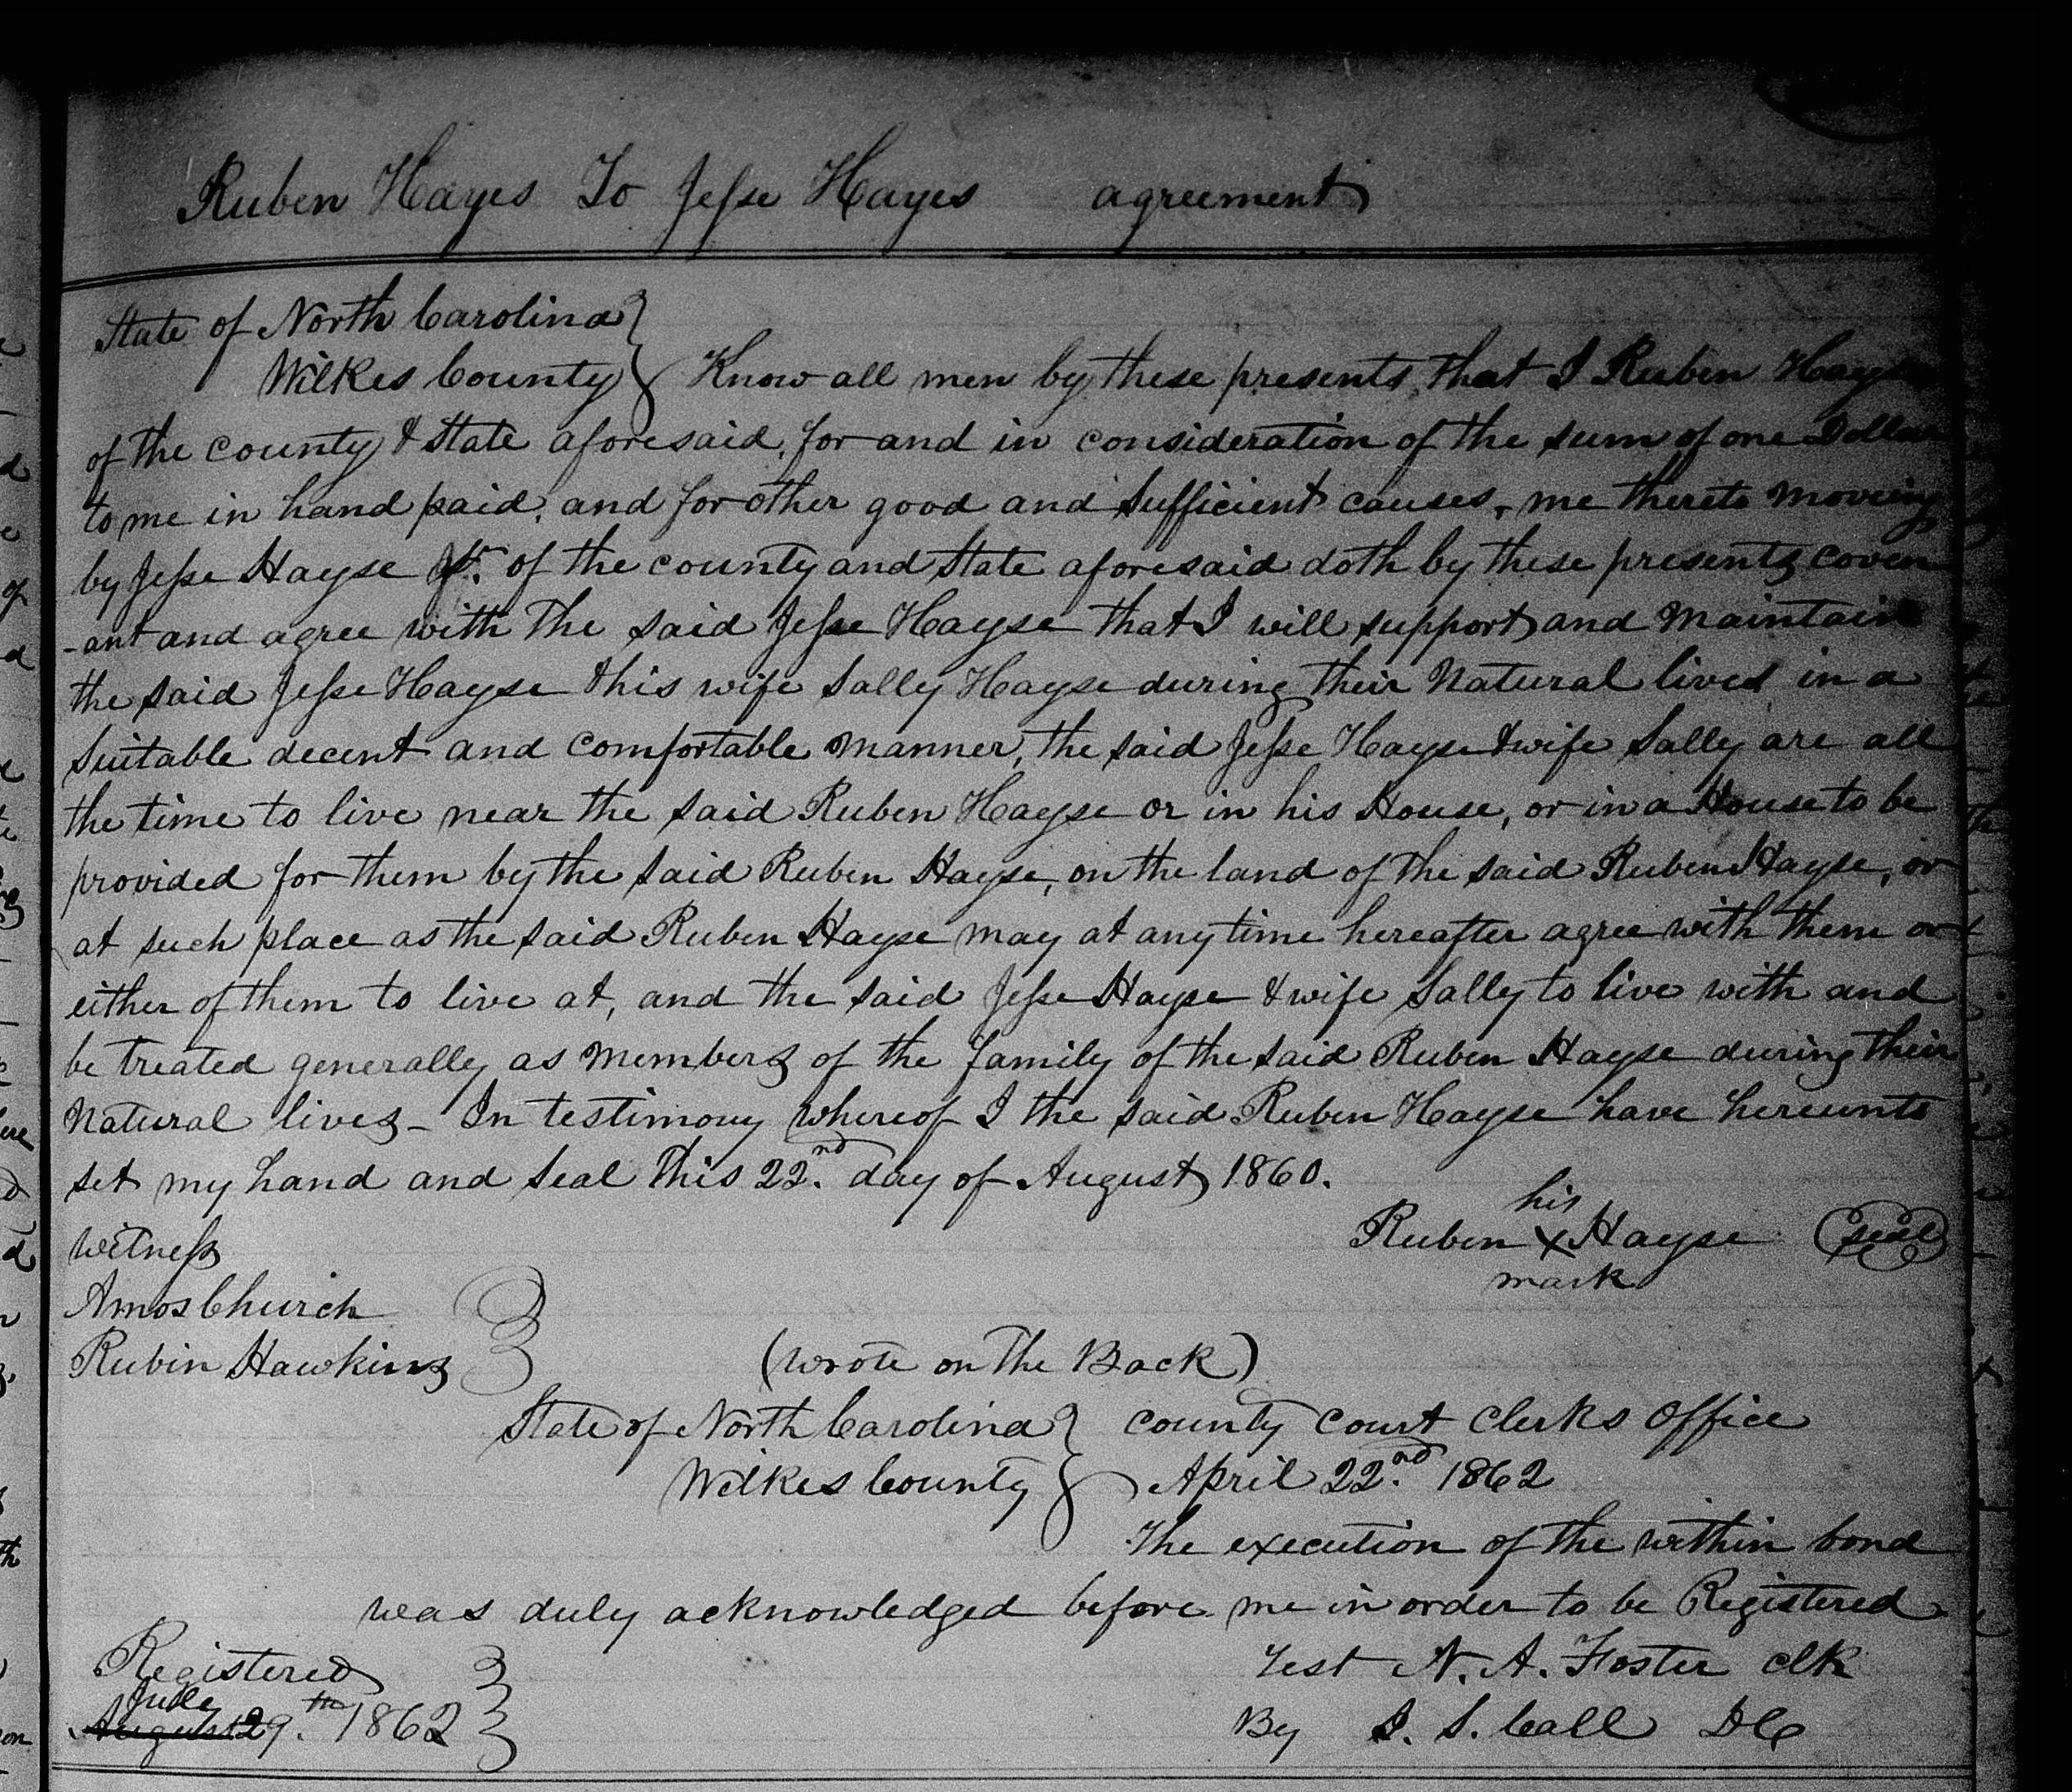 Ruben Hayes To Jesse Hayes agreement
State of North Carolina
Wilkes County Know all men by these presents, that I Ruben Hayse
of the county & State aforesaid, for and in consideration of the sum of one Dollar
to me in hand paid, and for other good and sufficient causes, me thereto moveing
by Jesse Hayse of the county and State aforesaid doth by these presents coven
-ant and agree with the said Jesse Hayse that I will support and maintain
the said Jesse Hayse & his wife Sally Hayse during their Natural lives in a
Suitable decent and comfortable manner, the said Jesse Hayse & wife Sally are all
the time to live near the said Ruben Hayse or in his House, or in a House to be
provided for them by the said Ruben Hayse, on the land of the said Ruben Hayse, or
at such place as the said Ruben Hayse may at any time hereafter agree with them or
either of them to live at, and the said Jesse Hayse & wife Sally to live with and
be treated generally as members of the family of the said Ruben Hayse during their
Natural lives - In testimony whereof I the said Ruben Hayse have hereunto
set my hand and seal this 22.nd day of August 1860.
his
witness Ruben X Hayse seal
mark
Amos Church
Rubin Hawkins (wrote on the Back)
State of North Carolina county court clerks office
Wilkes County April 22.nd 1862
The execution of the within bond
was duly acknowledged before me in order to be Registered
Registered Test N. A. Foster clk
July
August 29.th 1862 By S. S. Call DC